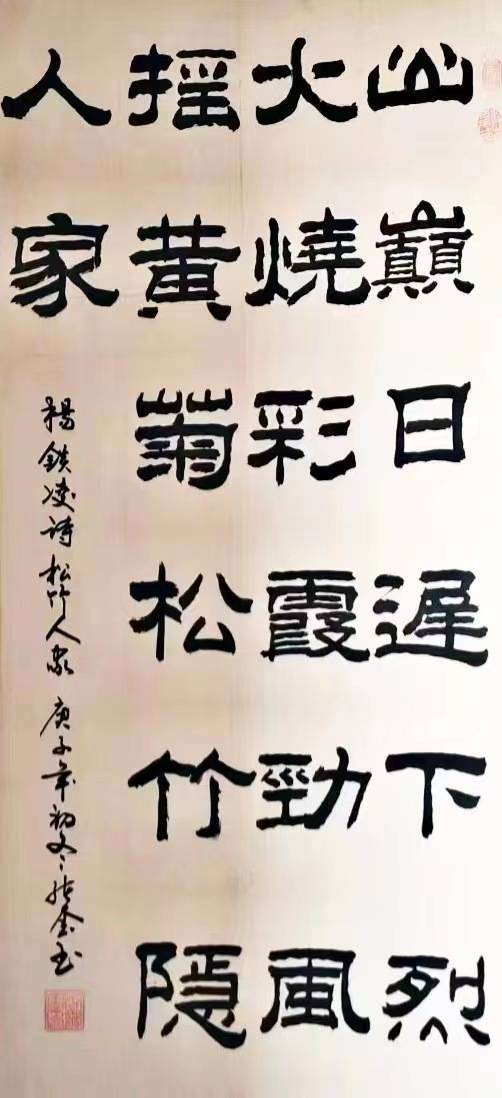 山巔日遲下烈
火燒彩霞勁風
搖黃菊松竹隱
人家
楊鐵凌詩松竹人家 庚子年初冬